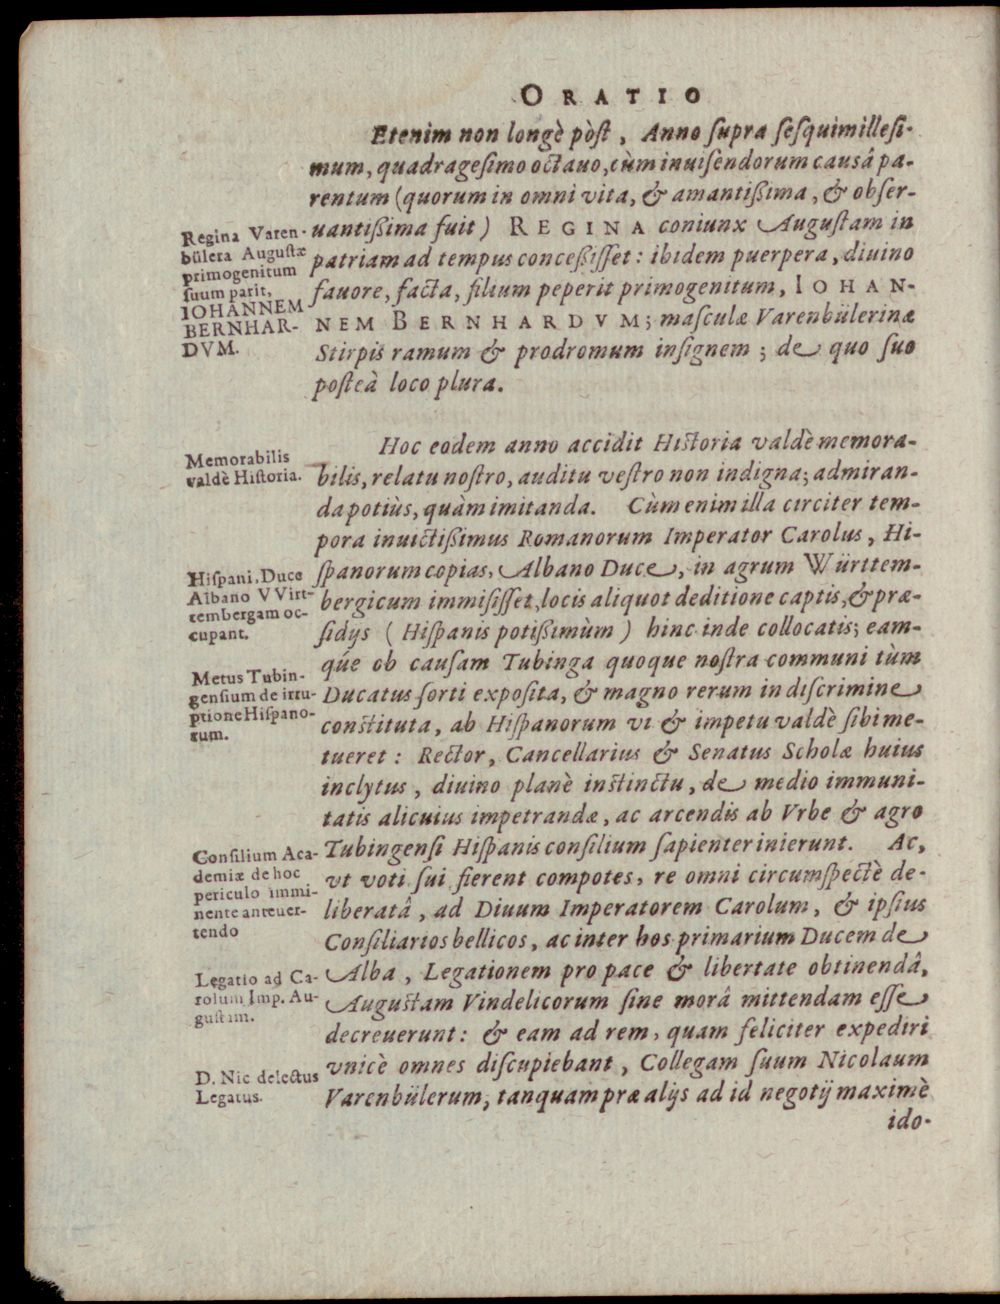 ORATIO
Etenim non longè pòst, Anno supra sesquimillesi-
mum, quadragesimo octauo, cùm inuisendorum causâ pa-
rentum (quorum in omni vita, & amantißima, & obser-
uantißima fuit) REGINA coniunx Augustam in
patriam ad tempus conceßisset: ibidem puerpera, diuino
fauore, facta, filium peperit primogenitum, IOHAN-
NEM BERNHARDVM; masculæ Varenbülerinæ
Stirpis ramum & prodromum insignem; de quo suo
posteà loco plura.
Regina Varen-
bülera Augustæ
primogenitum
suum parit,
IOHANNEM
BERNHAR-
DVM.
Hoc eodem anno accidit Historia valdè memora-
bilis, relatu nostro, auditu vestro non indigna; admiran-
da potiùs, quàm imitanda. Cùm enim illa circiter tem-
pora inuictißimus Romanorum Imperator Carolus, Hi-
spanorum copias, Albano Duce, in agrum Württem-
bergicum immisisset, locis aliquot deditione captis, & præ-
sidijs (Hispanis potißimùm) hinc inde collocatis; eam-
qúe ob causam Tubinga quoque nostra communi tùm
Ducatus sorti exposita, & magno rerum in discrimine
constituta, ab Hispanorum vi & impetu valdè sibi me-
tueret: Rector, Cancellarius & Senatus Scholæ huius
inclytus, diuino planè instinctu, de medio immuni-
tatis alicuius impetrandæ, ac arcendis ab Vrbe & agro
Tubingensi Hispanis consilium sapienter inierunt. Ac,
vt voti sui fierent compotes, re omni circumspectè de-
liberatâ, ad Diuum Imperatorem Carolum, & ipsius
Consiliarios bellicos, ac inter hos primarium Ducem de
Alba, Legationem pro pace & libertate obtinendâ,
Augustam Vindelicorum sine morâ mittendam esse
decreuerunt: & eam ad rem, quam feliciter expediri
vnicè omnes discupiebant, Collegam suum Nicolaum
Varenbülerum, tanquam præ alijs ad id negotij maximè
ido-
Memorabilis
valdè Historia.
Hispani, Duce
Albano VVirt-
tembergam oc-
cupant.
Metus Tubin-
gensium de irru-
ptione Hispano-
rum.
Consilium Aca-
demiæ de hoc
periculo immi-
nente anteuer-
tendo
Legatio ad Ca-
rolum Imp. Au-
gustam.
D. Nic delectus
Legatus.